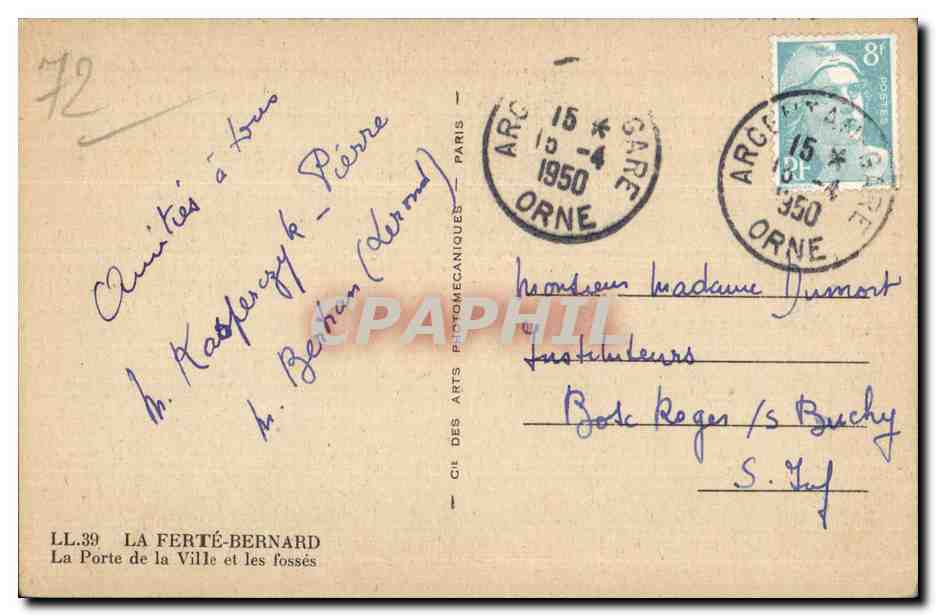 72
Amitiés à tous
M. Kasperczyk - Pierre
M. Bertran (Lerond)
CIE DES ARTS PHOTOMECANIQUES - PARIS
ARGENTAN GARE
15 *
15 -4
1950
ORNE
8F
POSTES
ARGENTAN GARE
15 *
15 -4
1950
ORNE
Monsieur Madame Dumort
Instituteurs
Bosc Roger /s Buchy
S. Inf
CPAPHIL
LL.39 LA FERTÉ-BERNARD
La Porte de la Ville et les fossés